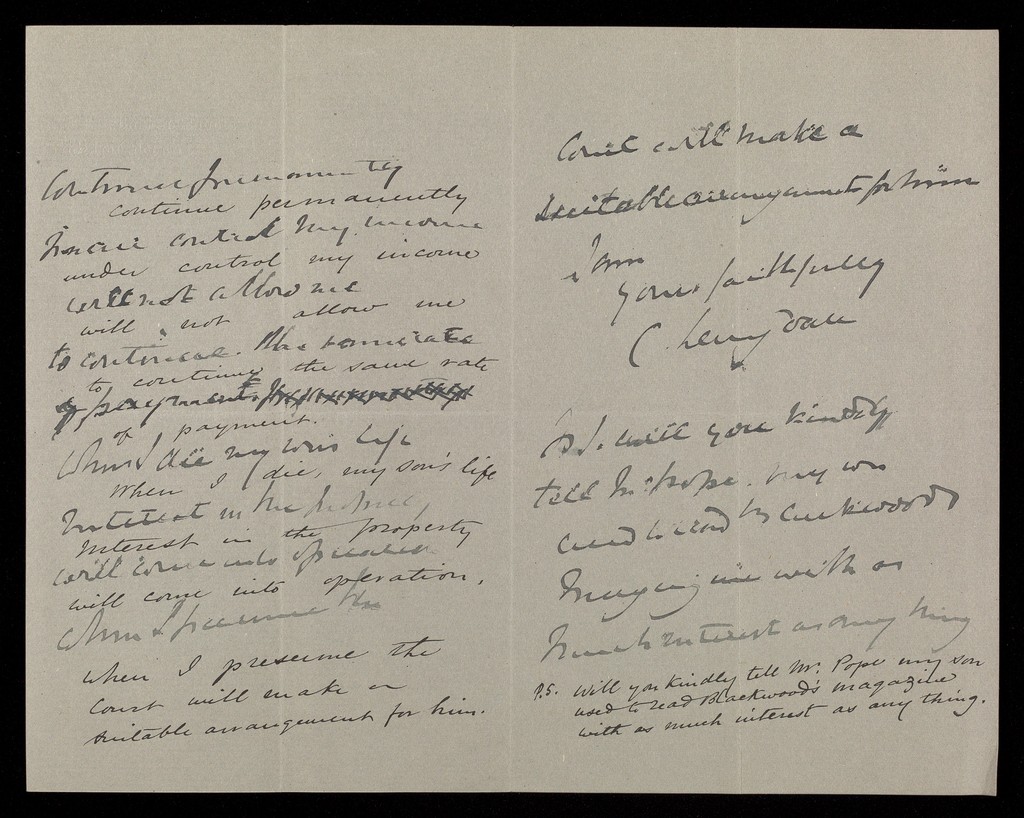 Continue permanently
continue permanently
under control my income
under control my income
will not allow me
will not allow me
to continue. the same rate
to continue the same rate
of payment
of payment.
When I die my son's life
When I die, my son's life
Interest in the property
Interest in the property
will come into operation
will come into operation.
When I presume the
when I presume the
Court will make a
suitable arrangement for him.
Court will make a
suitable arrangement for him
I am
yours faithfully
C.
P.S. will you kindly
tell Mr. Pope. my son
used to read Blackwoods
Magazine with as
much interest as any thing
P.S. Will you kindly tell Mr. Pope my son
used to read Blackwood's magazine
with as much interest as any thing.